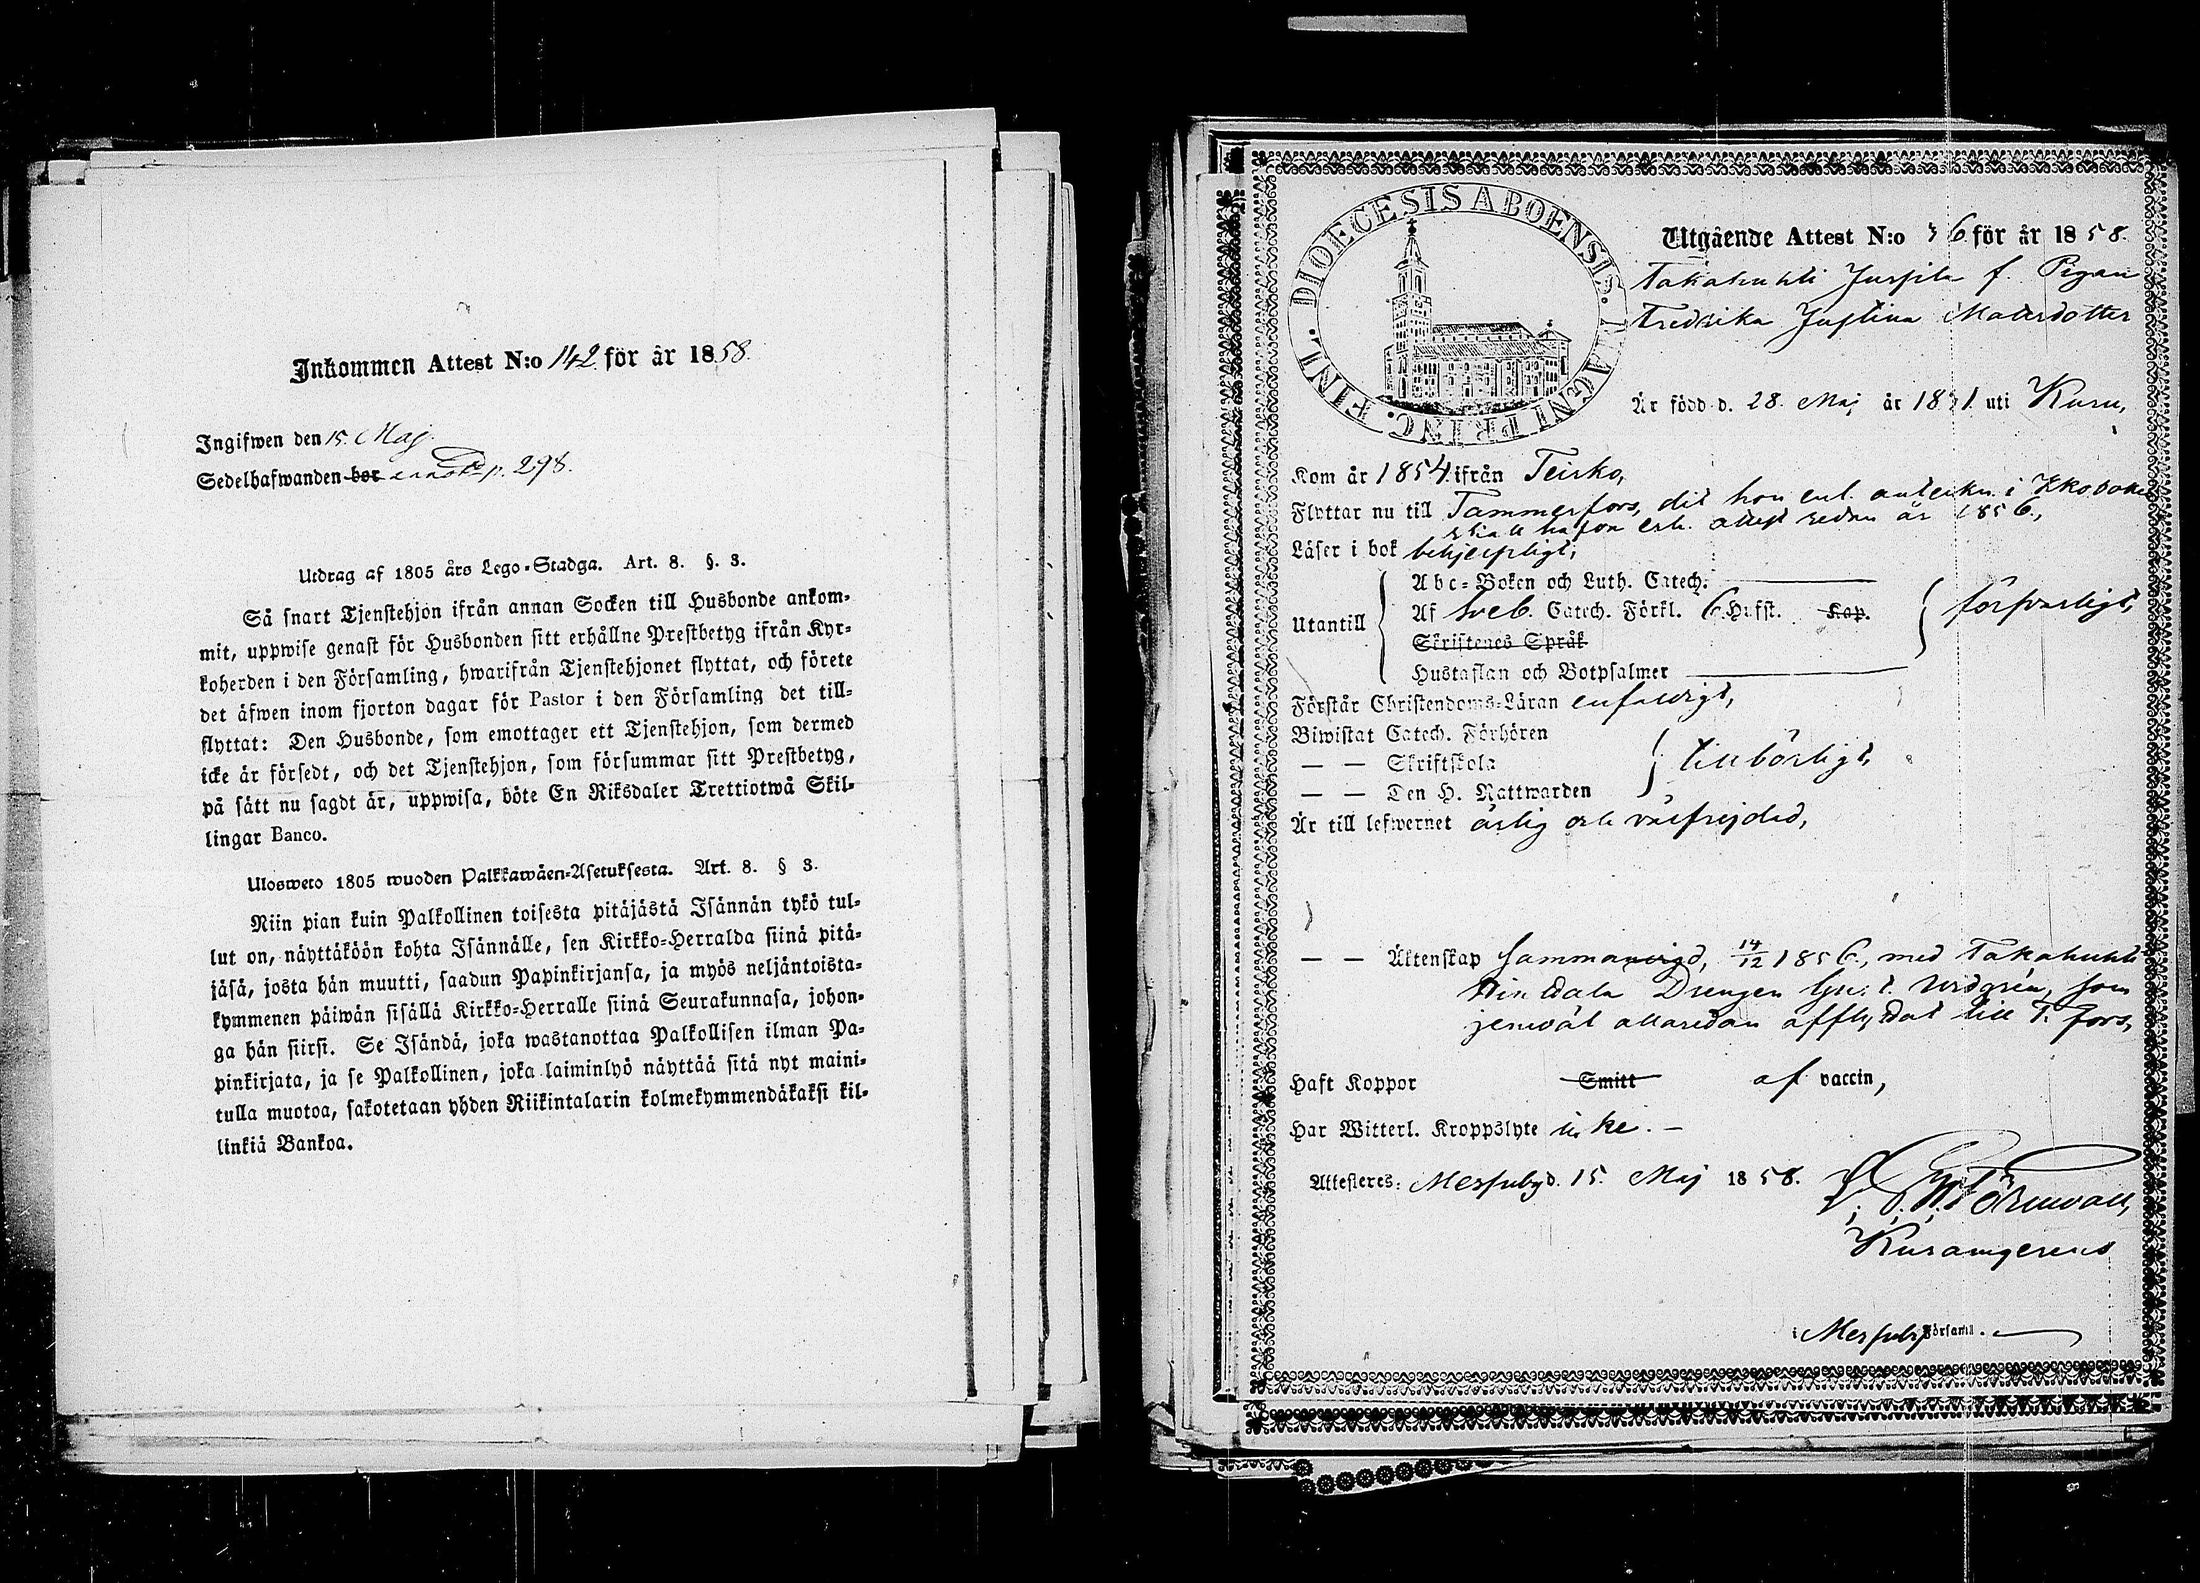 Inkommen Attest N:o 142 för år 1858.
Ingifwen den 15. Maj.
Sedelhafwanden bor p. 298.
Utdrag af 1805 års Lego-Stadga. Art. 8. §. 3.
Så snart Tjenstehjon ifrån annan Socken till Husbonde ankom-
mit, uppwise genast för Husbonden sitt erhållne Prestbetyg ifrån Kyr-
koherden i den Församling, hwarifrån Tjenstehjonet flyttat, och förete
det äfwen inom fjorton dagar för Pastor i den Församling det till-
flyttat: Den Husbonde, som emottager ett Tjenstehjon, som dermed
icke är försedt, och det Tjenstehjon, som försummar sitt Prestbetyg,
på sätt nu sagdt är, uppwisa, böte En Riksdaler Trettiotwå Skil-
lingar Banco.
Ulosweto 1805 wuoden Palkkawäen-Asetuksesta. Art. 8. § 3.
Niin pian kuin Palkollinen toisesta pitäjästä Isännän tykö tul-
lut on, näyttäköön kohta Isännälle, sen Kirkko-Herralda siinä pitä-
jäsä, josta hän muutti, saadun Papinkirjansa, ja myös neljäntoista-
kymmenen päiwän sisällä Kirkko-Herralle siinä Seurakunnasa, johon-
ga hän siirsi. Se Isändä, joka wastanottaa Palkollisen ilman Pa-
pinkirjata, ja se Palkollinen, joka laiminlyö näyttää sitä nyt maini-
tulla muotoa, sakotetaan yhden Riikintalarin kolmekymmendäkaksi kil-
linkiä Bankoa.
DIOECESIS ABOENSIS. MAGNI PRINC. FINL.
Utgående Attest N:o 36 för år 1858.
Takahuhti Jussila f. Pigan
Fredrika Justina Matsdotter
Är född d. 28. Maj år 1831. uti Kuru,
Kom år 1854 ifrån Teisko,
Flyttar nu till Tammerfors, dit hon enl. anteckn. i Kkoboken
skall hafva erh. attest redan år 1856,
Läser i bok behjelpligt,
Abc-Boken och Luth. Catech.
Utantill Af Sveb. Catech. Förkl. 6 Hufst. Kap. försvarligt,
Skriftenes Språk
Hustaflan och Botpsalmer
Förstår Christendoms-Läran enfaldigt,
Biwistat Catech. Förhören
— — Skriftskola tillbörligt,
— — Den H. Nattwarden
Är till lefwernet ärlig och välfrejdad,
— — Äktenskap Sammanvigd, 14/12 1856, med Takahuhti
Drengen Widgrén, som
jemväl allaredan afflyttat till T.fors,
Haft Koppor Smitt af vaccin,
Har Witterl. Kroppslyte icke. —
Attesteres: Messuby d. 15. Maj 1858.
Törnwall,
i Messuby Församl.